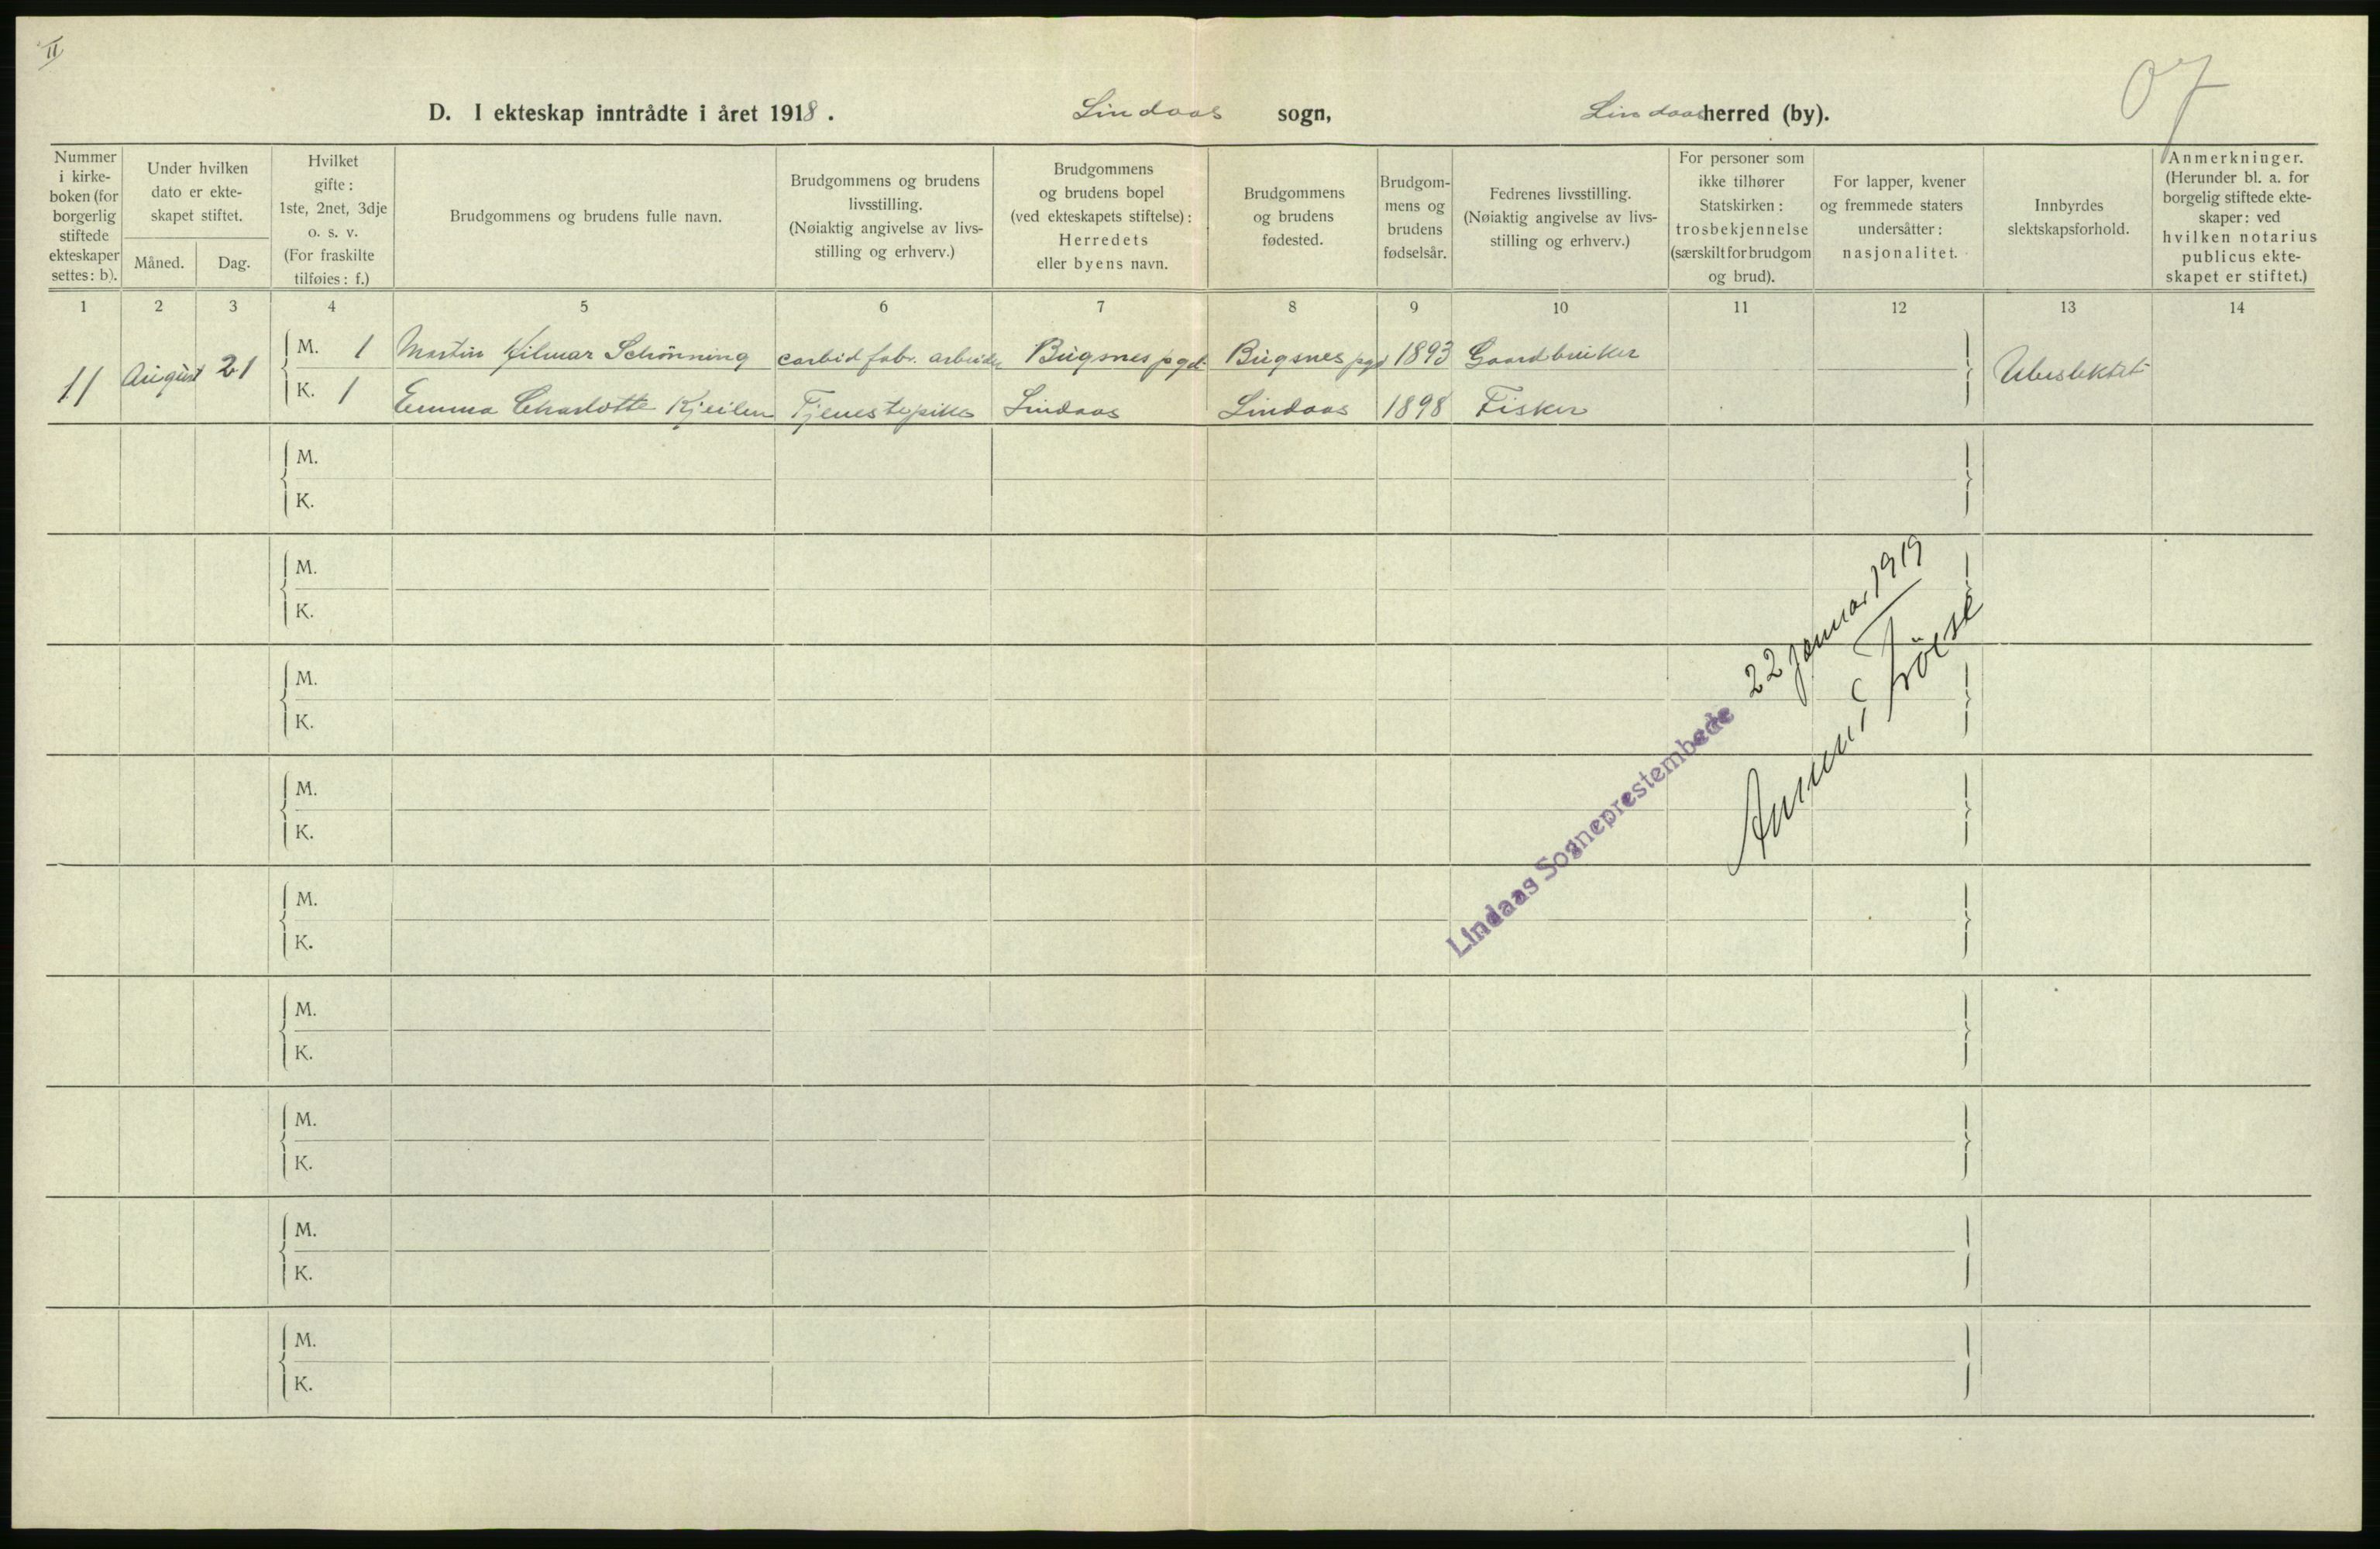 II
07
D. I ekteskap inntrådte i året 1918. Lindaas sogn, Lindaas herred (by).
Nummer i kirke- boken (for borgerlig stiftede ekteskaper settes: b).
Under hvilken dato er ekte- skapet stiftet.
Måned.
Dag.
Hvilket gifte: 1ste, 2net, 3dje o. s. v. (For fraskilte tilføies: f.)
Brudgommens og brudens fulle navn.
Brudgommens og brudens livsstilling. (Nøiaktig angivelse av livs- stilling og erhverv.)
Brudgommens og brudens bopel (ved ekteskapets stiftelse): Herredets eller byens navn.
Brudgommens og brudens fødested.
Brudgom- mens og brudens fødselsår.
Fedrenes livsstilling. (Nøiaktig angivelse av livs- stilling og erhverv.)
For personer som ikke tilhører Statskirken: trosbekjennelse (særskilt for brudgom og brud).
For lapper, kvener og fremmede staters undersåtter: nasjonalitet.
Innbyrdes slektskapsforhold.
Anmerkninger. (Herunder bl. a. for borgerlig stiftede ekte- skaper: ved hvilken notarius publicus ekte- skapet er stiftet.)
1 2 3 4 5 6 7 8 9 10 11 12 13 14
11 August 21 M. 1 Martin Hilmar Schönning carbid fabr. arbeider Bugsnes pgd. Bugsnes pgd 1893 Gaardbruker Ubeslektet
K. 1 Emma Charlotte Kjeilen Tjenestepike Lindaas Lindaas 1898 Fisker
M.
K.
M.
K.
M.
K.
M.
K.
M.
K.
M.
K.
M.
K.
M.
K.
M.
K.
Lindaas Sogneprestembede 22 januar 1919